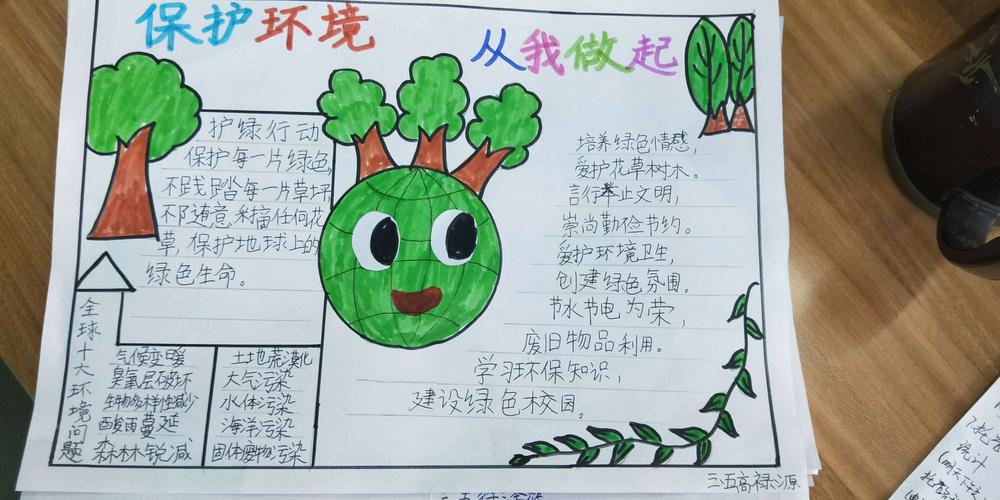 保护环境
从我做起
护绿行动
保护每一片绿色,
不践踏每一片草坪
不随意采摘任何花
草,保护地球上的
绿色生命。
全球十大环境问题
气候变暖
臭氧层破坏
生物多样性减少
酸雨蔓延
森林锐减
土地荒漠化
大气污染
水体污染
海洋污染
固体废物污染
培养绿色情感,
爱护花草树木。
言行举止文明,
崇尚勤俭节约。
爱护环境卫生,
创建绿色氛围。
节水节电为荣,
废旧物品利用。
学习环保知识,
建设绿色校园。
三五高禄源